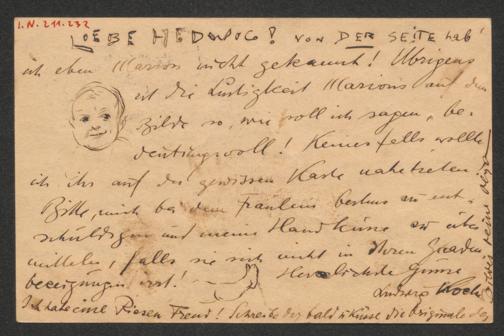 I.N. 211.232
LIEBE HEDWIG! VON DER SEITE hab'
ich eben Marion nicht gekannt! Übrigens
ist die Lustigkeit Marions auf dem
Bilde so, wie soll ich sagen, be-
deutungsvoll! Keinesfalls wollte
ich ihr auf der gewissen Karte nahetreten.
Bitte, mich bei dem Fräulein bestens zu ent-
schuldigen und meine Handküsse zu über
mitteln, falls sie sich nicht in Ihren Gnaden
Herzlichste Grüsse
Ludwig Koch
Ich habe eine Riesen Freud! Schreibe bald u küsse die Originale